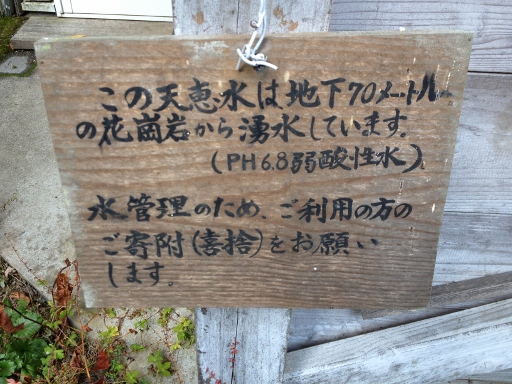 この天恵水は地下70メートル
の花崗岩から湧水しています。
(PH6.8弱酸性水)
水管理のため、ご利用の方の
ご寄附(喜捨)をお願い
します。